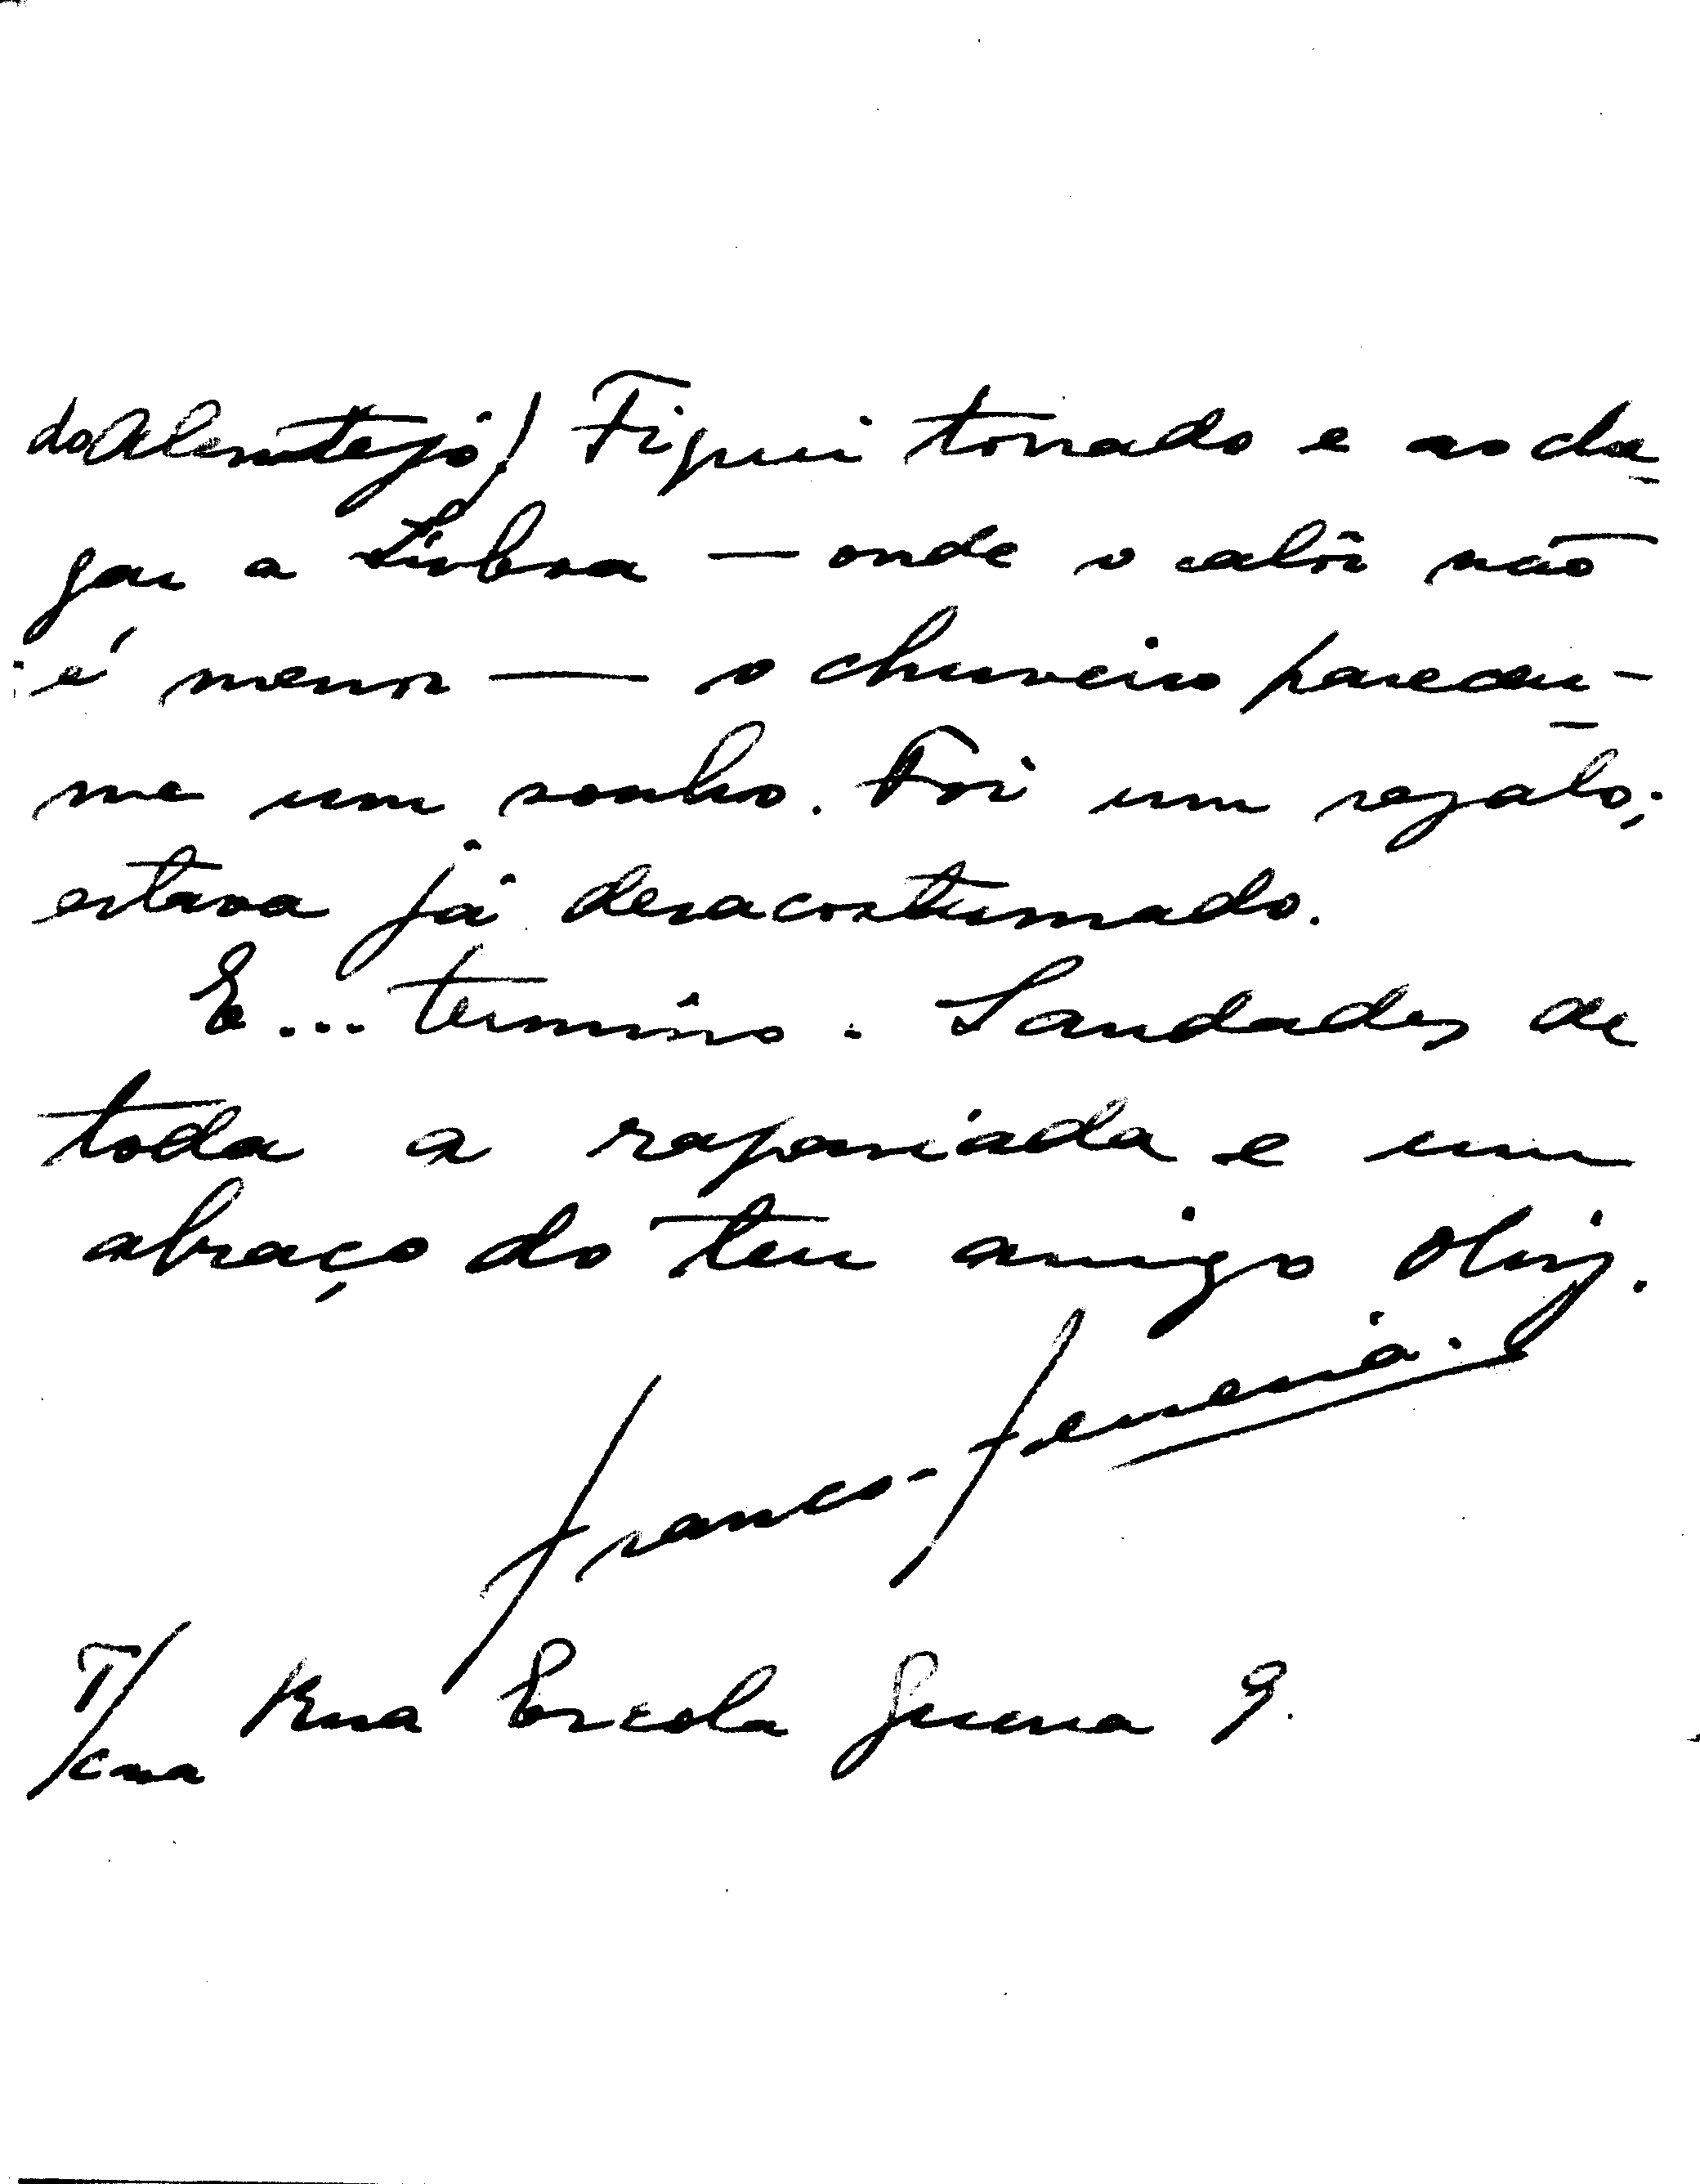 do Alemtejo! Fiquei torrado e ao che-
gar a Lisboa — onde o calôr não
é menor — o chuveiro pareceu-
me um sonho. Foi um regalo;
estava já desacostumado.
E... termino. Saudades de
toda a rapaziada e um
abraço do teu amigo obrig.
Franco-Ferreira.
T/ Rua Escola Guerra 9.
/casa